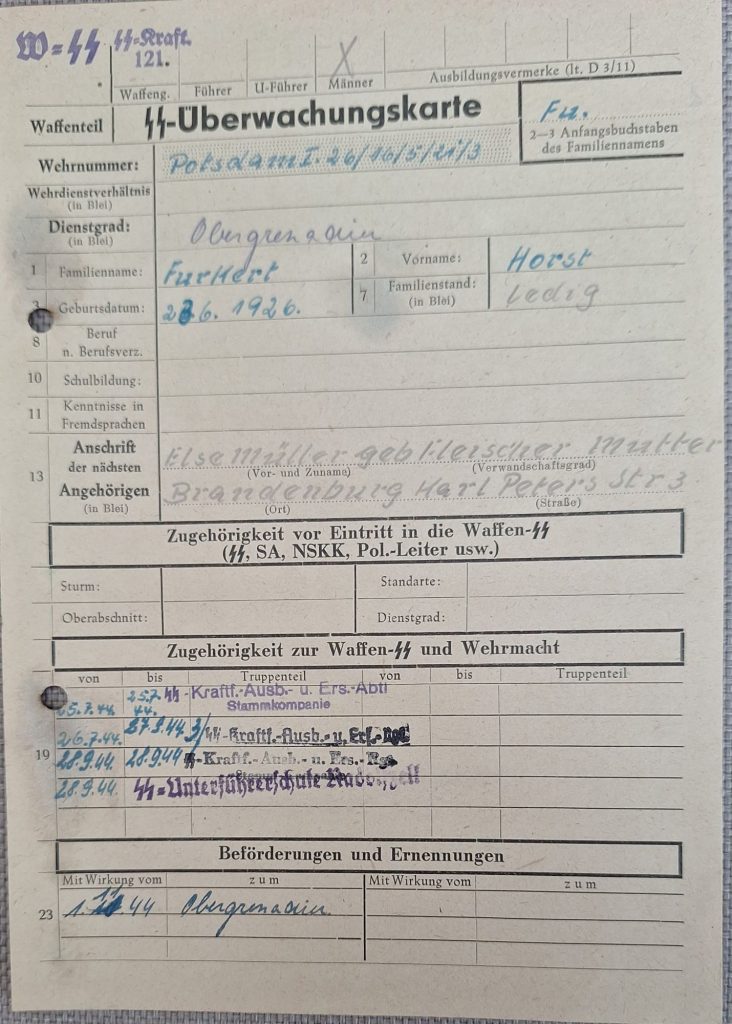 W=SS SS-Kraft.
121.
Waffeng. Führer U-Führer Männer Ausbildungsvermerke (lt. D 3/11)
X
Waffenteil SS-Überwachungskarte Fu.
2—3 Anfangsbuchstaben
des Familiennamens
Wehrnummer: Potsdam I. 26/16/5/21/3
Wehrdienstverhältnis
(in Blei)
Dienstgrad: Obergrenadier
(in Blei)
1 Familienname: Furkert 2 Vorname: Horst
3 Geburtsdatum: 6. 1926. 7 Familienstand: ledig
(in Blei)
8 Beruf
n. Berufsverz.
10 Schulbildung:
11 Kenntnisse in
Fremdsprachen
13 Anschrift
der nächsten
Angehörigen
(in Blei)
Else Müller geb Fleischer Mutter
(Vor- und Zuname) (Verwandschaftsgrad)
Brandenburg Karl Peters Str 3
(Ort) (Straße)
Zugehörigkeit vor Eintritt in die Waffen-SS
(SS, SA, NSKK, Pol.-Leiter usw.)
Sturm: Standarte:
Oberabschnitt: Dienstgrad:
Zugehörigkeit zur Waffen-SS und Wehrmacht
von bis Truppenteil von bis Truppenteil
19
25.7.44. 25.7. 44. SS-Kraftf.-Ausb.- u. Ers.-Abtl
Stammkompanie
26.7.44. 27.9.44 3/SS-Kraftf.-Ausb.- u. Ers.-
28.9.44 28.9.44 SS-Kraftf.-Ausb.- u. Ers.-
28.9.44. SS=Unterführerschule Radolfzell
Beförderungen und Ernennungen
Mit Wirkung vom zum Mit Wirkung vom zum
23 1.11.44 Obergrenadier.